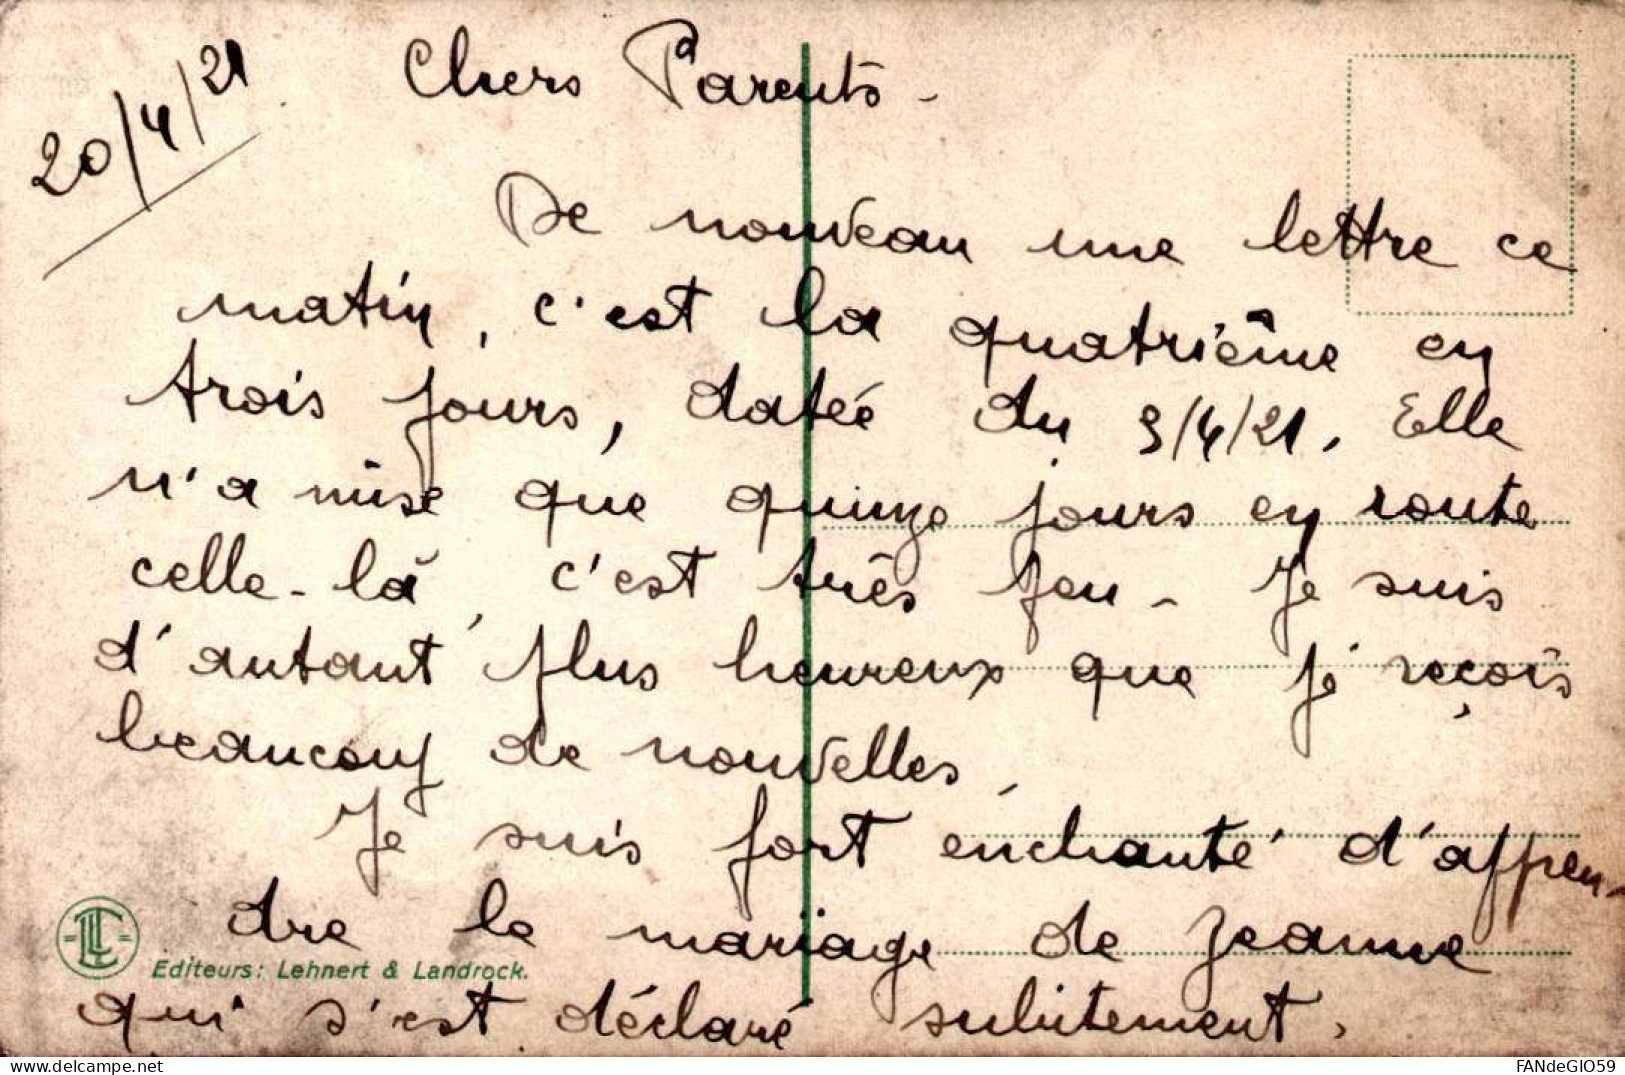 20/4/21
Chers Parents -
De nouveau une lettre ce
matin, c'est la quatrième en
trois jours, datée du 3/4/21. Elle
n'a mise que quinze jours en route
celle-là, c'est très peu - Je suis
d'autant plus heureux que je reçois
beaucoup de nouvelles.
Je suis fort enchanté d'appren-
dre le mariage de Jeanne
qui s'est déclaré subitement.
Editeurs: Lehnert & Landrock.
https://www.delcampe.net
FANdeGIO59